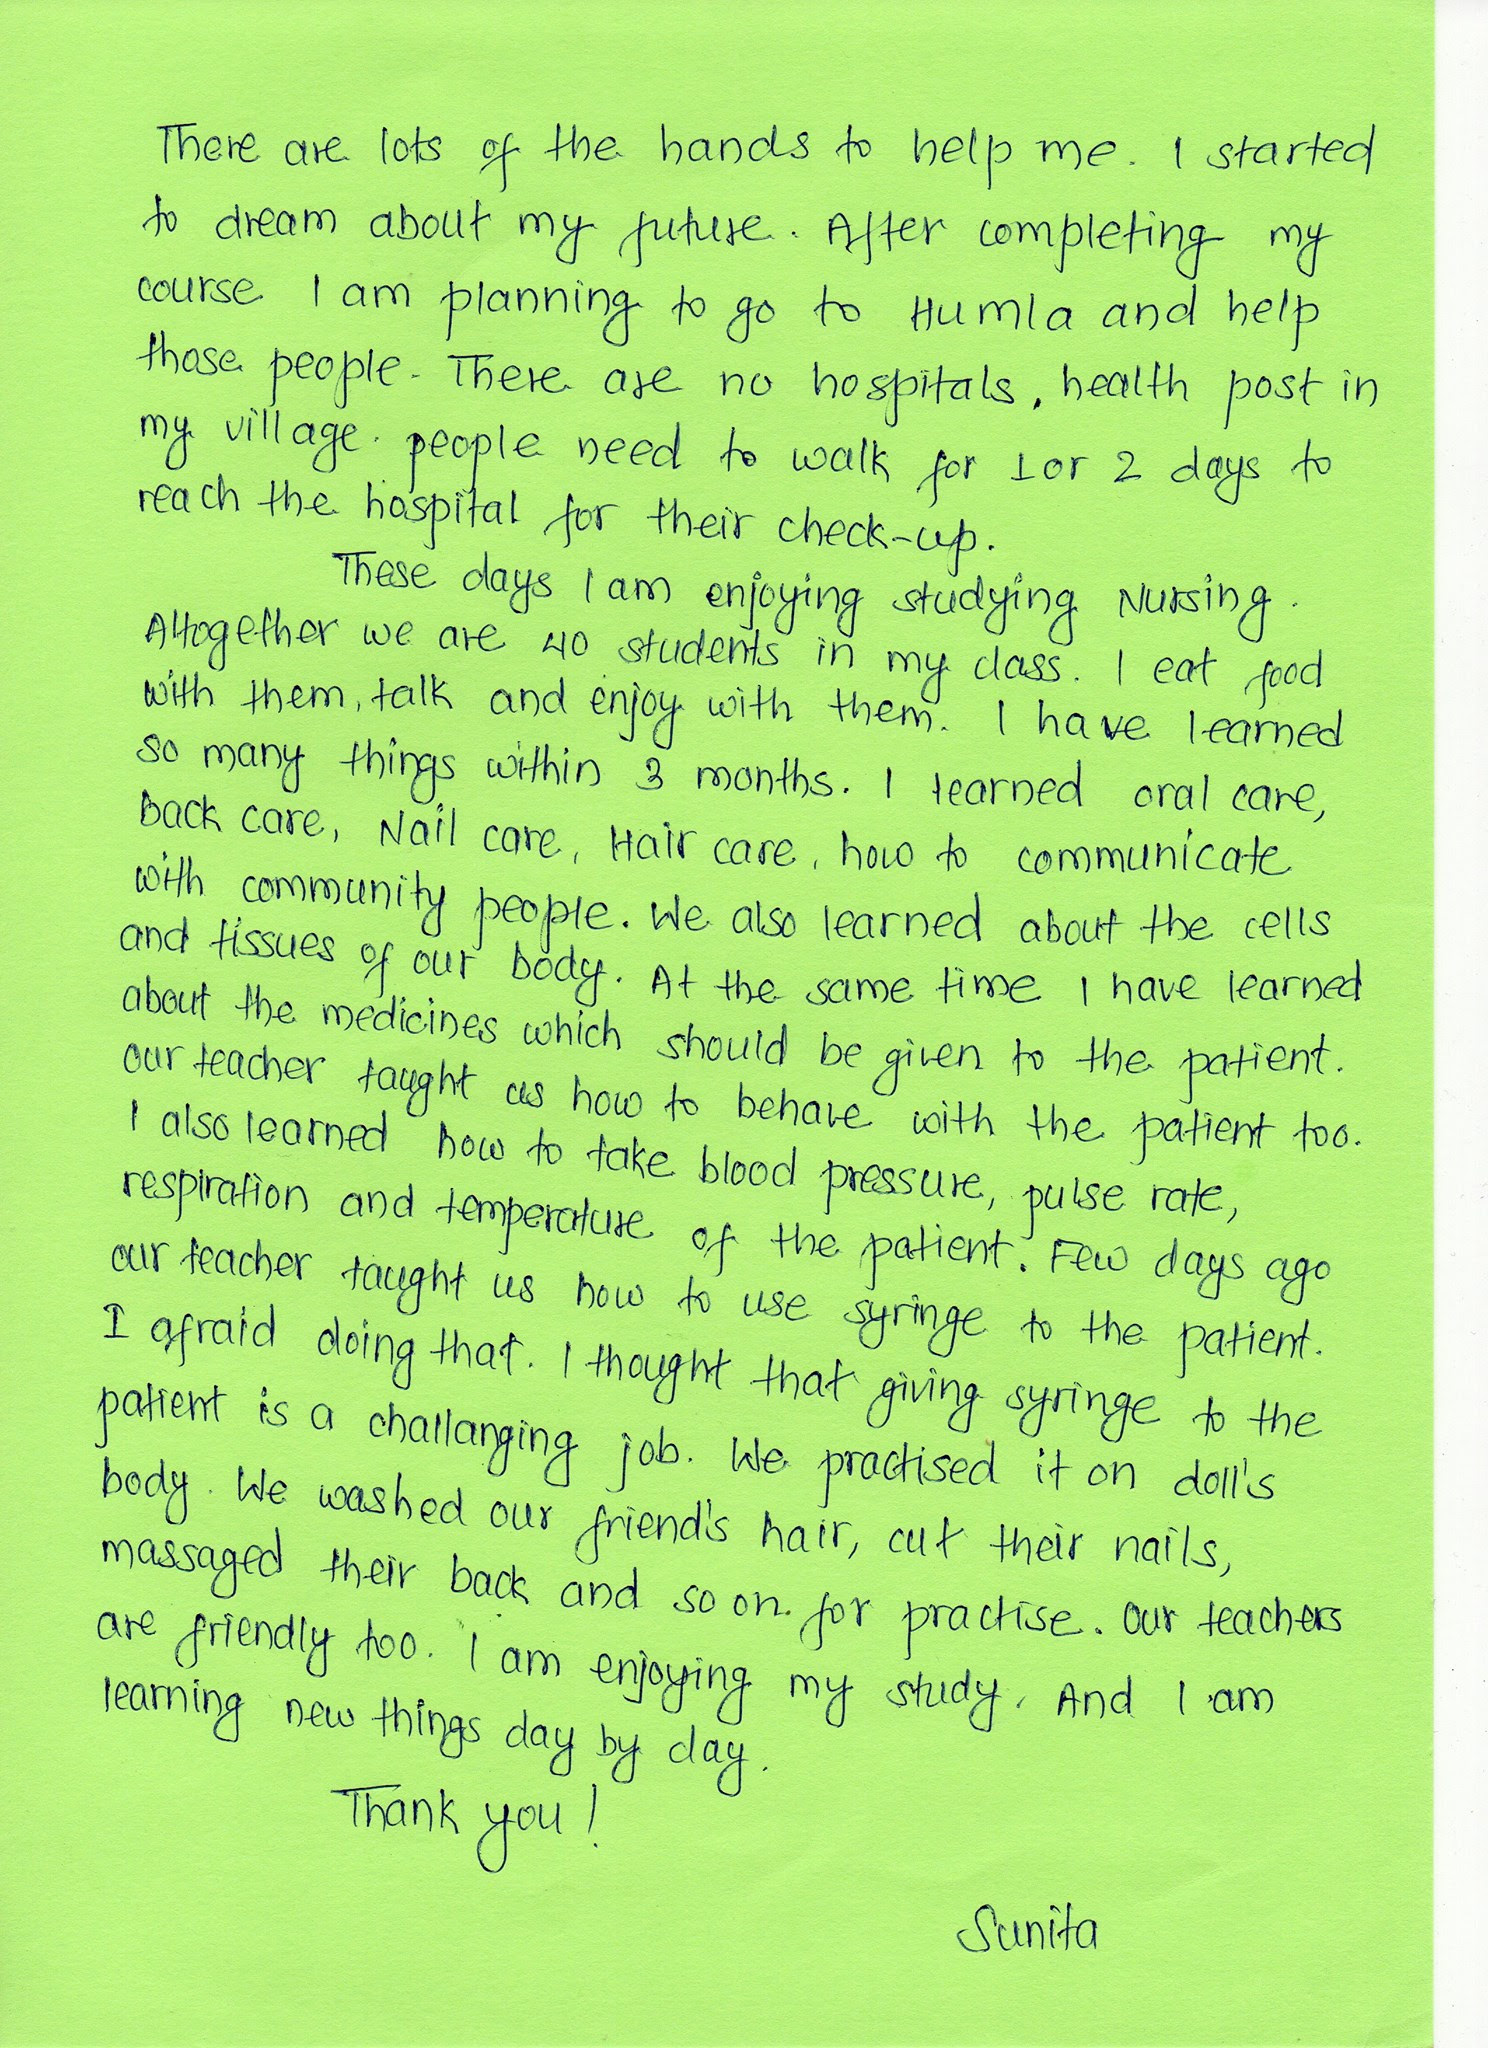 There are lots of the hands to help me. I started
to dream about my future. After completing my
course I am planning to go to Humla and help
those people. There are no hospitals, health post in
my village. people need to walk for 1 or 2 days to
reach the hospital for their check-up.
These days I am enjoying studying Nursing.
Altogether we are 40 students in my class. I eat food
with them, talk and enjoy with them. I have learned
so many things within 3 months. I learned oral care,
Back care, Nail care, Hair care, how to communicate
with community people. We also learned about the cells
and tissues of our body. At the same time I have learned
about the medicines which should be given to the patient.
our teacher taught us how to behave with the patient too.
I also learned how to take blood pressure, pulse rate,
respiration and temperature of the patient. Few days ago
our teacher taught us how to use syringe to the patient.
I afraid doing that. I thought that giving syringe to the
patient is a challanging job. We practised it on doll's
body. We washed our friend's hair, cut their nails,
massaged their back and so on for practise. Our teachers
are friendly too. I am enjoying my study. And I am
learning new things day by day.
Thank you!
Sunita